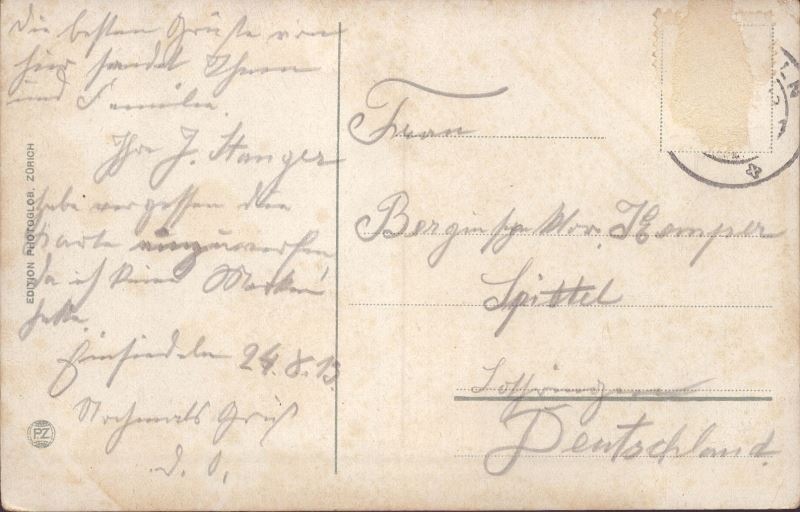 Die besten Grüße von
hier sendet Ihnen
und Familie
Ihre J. Stanger
habe vergessen die
Karte einzuwerfen
da ich keine Marken
hatte.
Einsiedeln 24.8.13.
Nochmals Gruß
D. O.
EDITION PHOTOGLOB. ZÜRICH
PZ
Frau
Berginspektor. Kemper
Spittel
Lothringen
Deutschland.